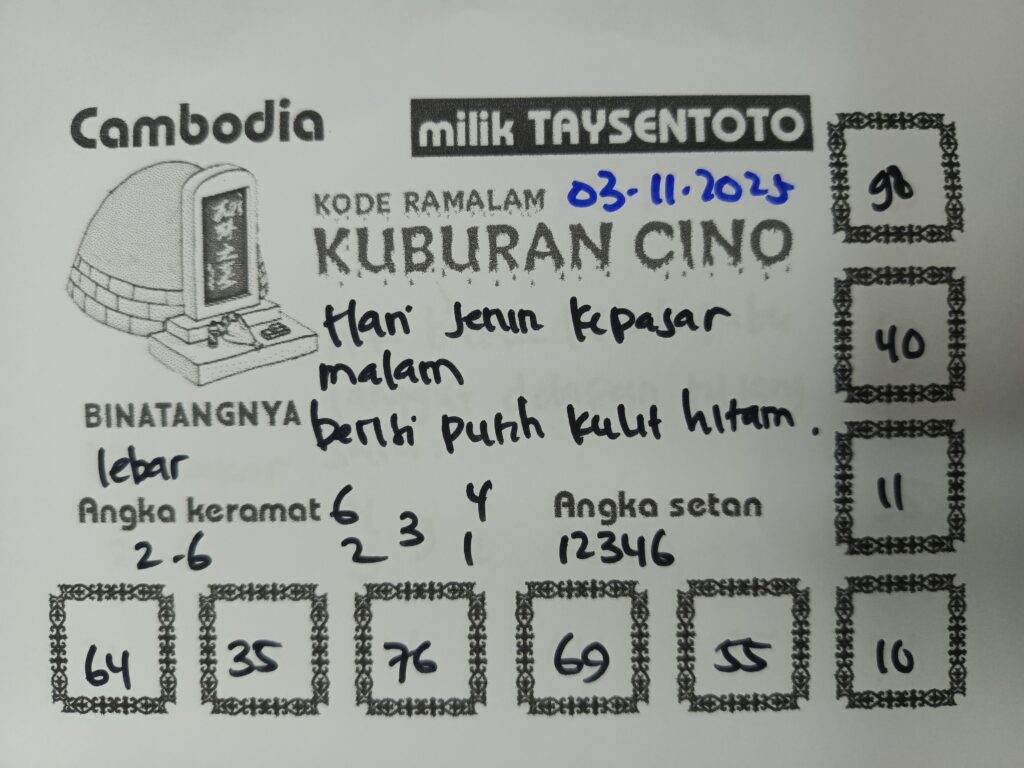 Cambodia
milik TAYSENTOTO
KODE RAMALAM 03-11-2025
KUBURAN CINO
Hari Senin kepasar
malam
BINATANGNYA berisi putih kulit hitam.
lebar
Angka keramat 6 4 Angka setan
2-6 2 3 1 12346
98
40
11
64 35 76 69 55 10